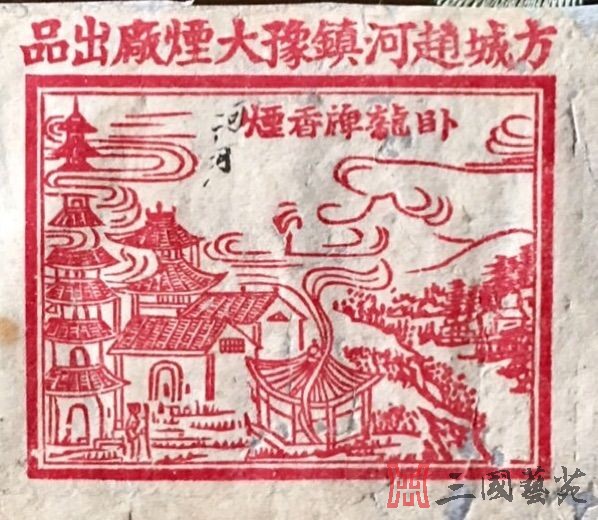 方城趙河鎮豫大煙廠出品
卧龍牌香煙
三國藝苑